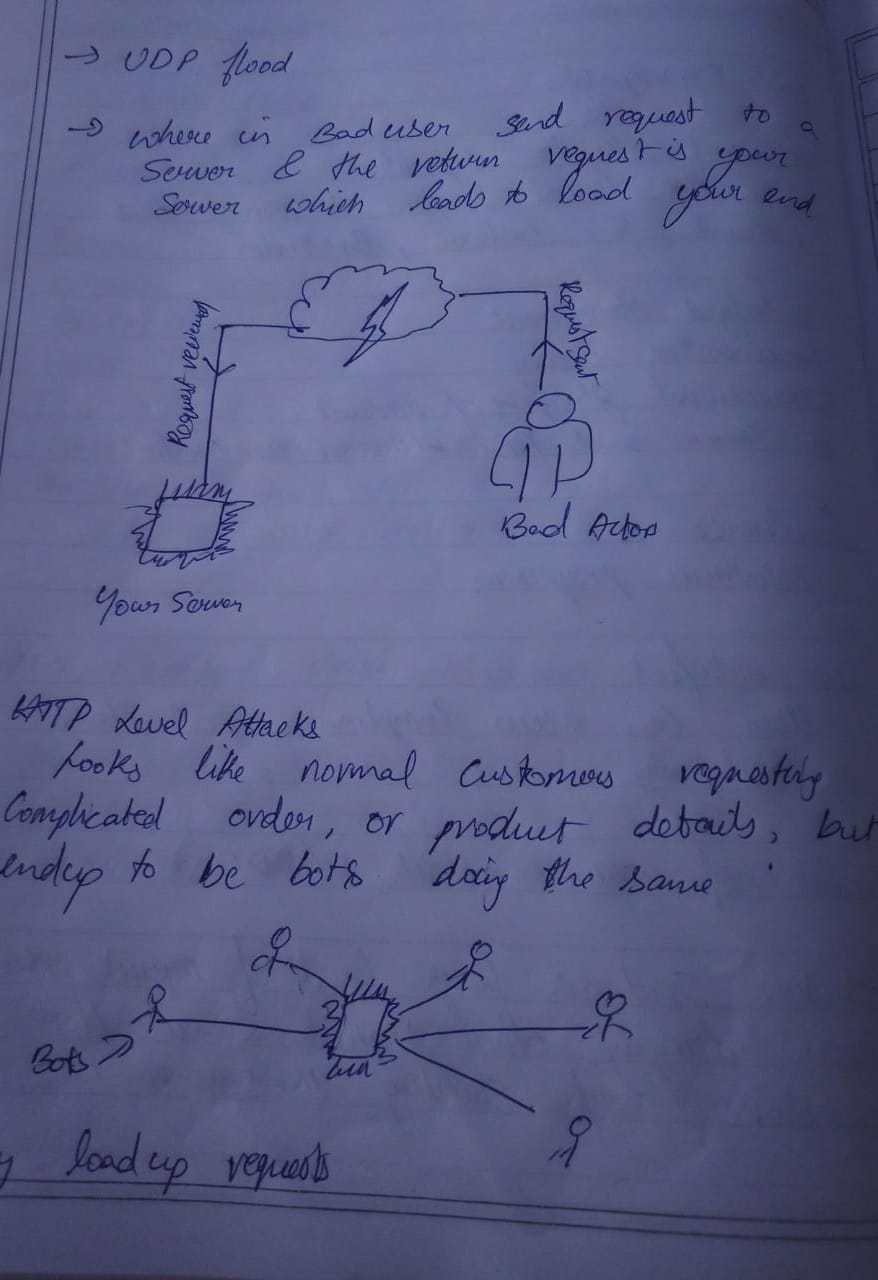 → UDP flood
→ where in Bad user send request to a
Server & the return request is your
Server which leads to load your end
Request received
Request Sent
Bad Actor
Your Server
HTTP Level Attacks
Looks like normal customers requesting
Complicated order, or product details, but
endup to be bots doing the same
Bots
load up requests